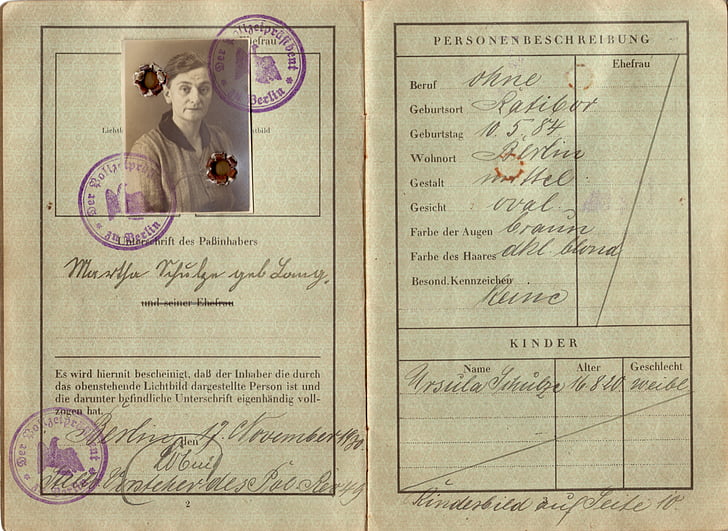 Ehefrau
Der Polizeipräsident
in Berlin
Lichtb
tbild
Der Polizeipräsident
in Berlin
Unterschrift des Paßinhabers
Martha Schulze geb Lang.
und seiner Ehefrau
Es wird hiermit bescheinigt, daß der Inhaber die durch
das obenstehende Lichtbild dargestellte Person ist und
die darunter befindliche Unterschrift eigenhändig voll-
zogen hat.
Berlin, den 17. November 1930
Der Polizeipräsident
in Berlin
Vorsteher des Pol. Rev 49
2
PERSONENBESCHREIBUNG
Ehefrau
Beruf ohne
Geburtsort Ratibor
Geburtstag 10.5.84
Wohnort Berlin
Gestalt mittel
Gesicht oval
Farbe der Augen braun
Farbe des Haares dkl. blond
Besond. Kennzeichen
keine
KINDER
Name Alter Geschlecht
Ursula Schulze 16.8.20 weibl.
Kinderbild auf Seite 10